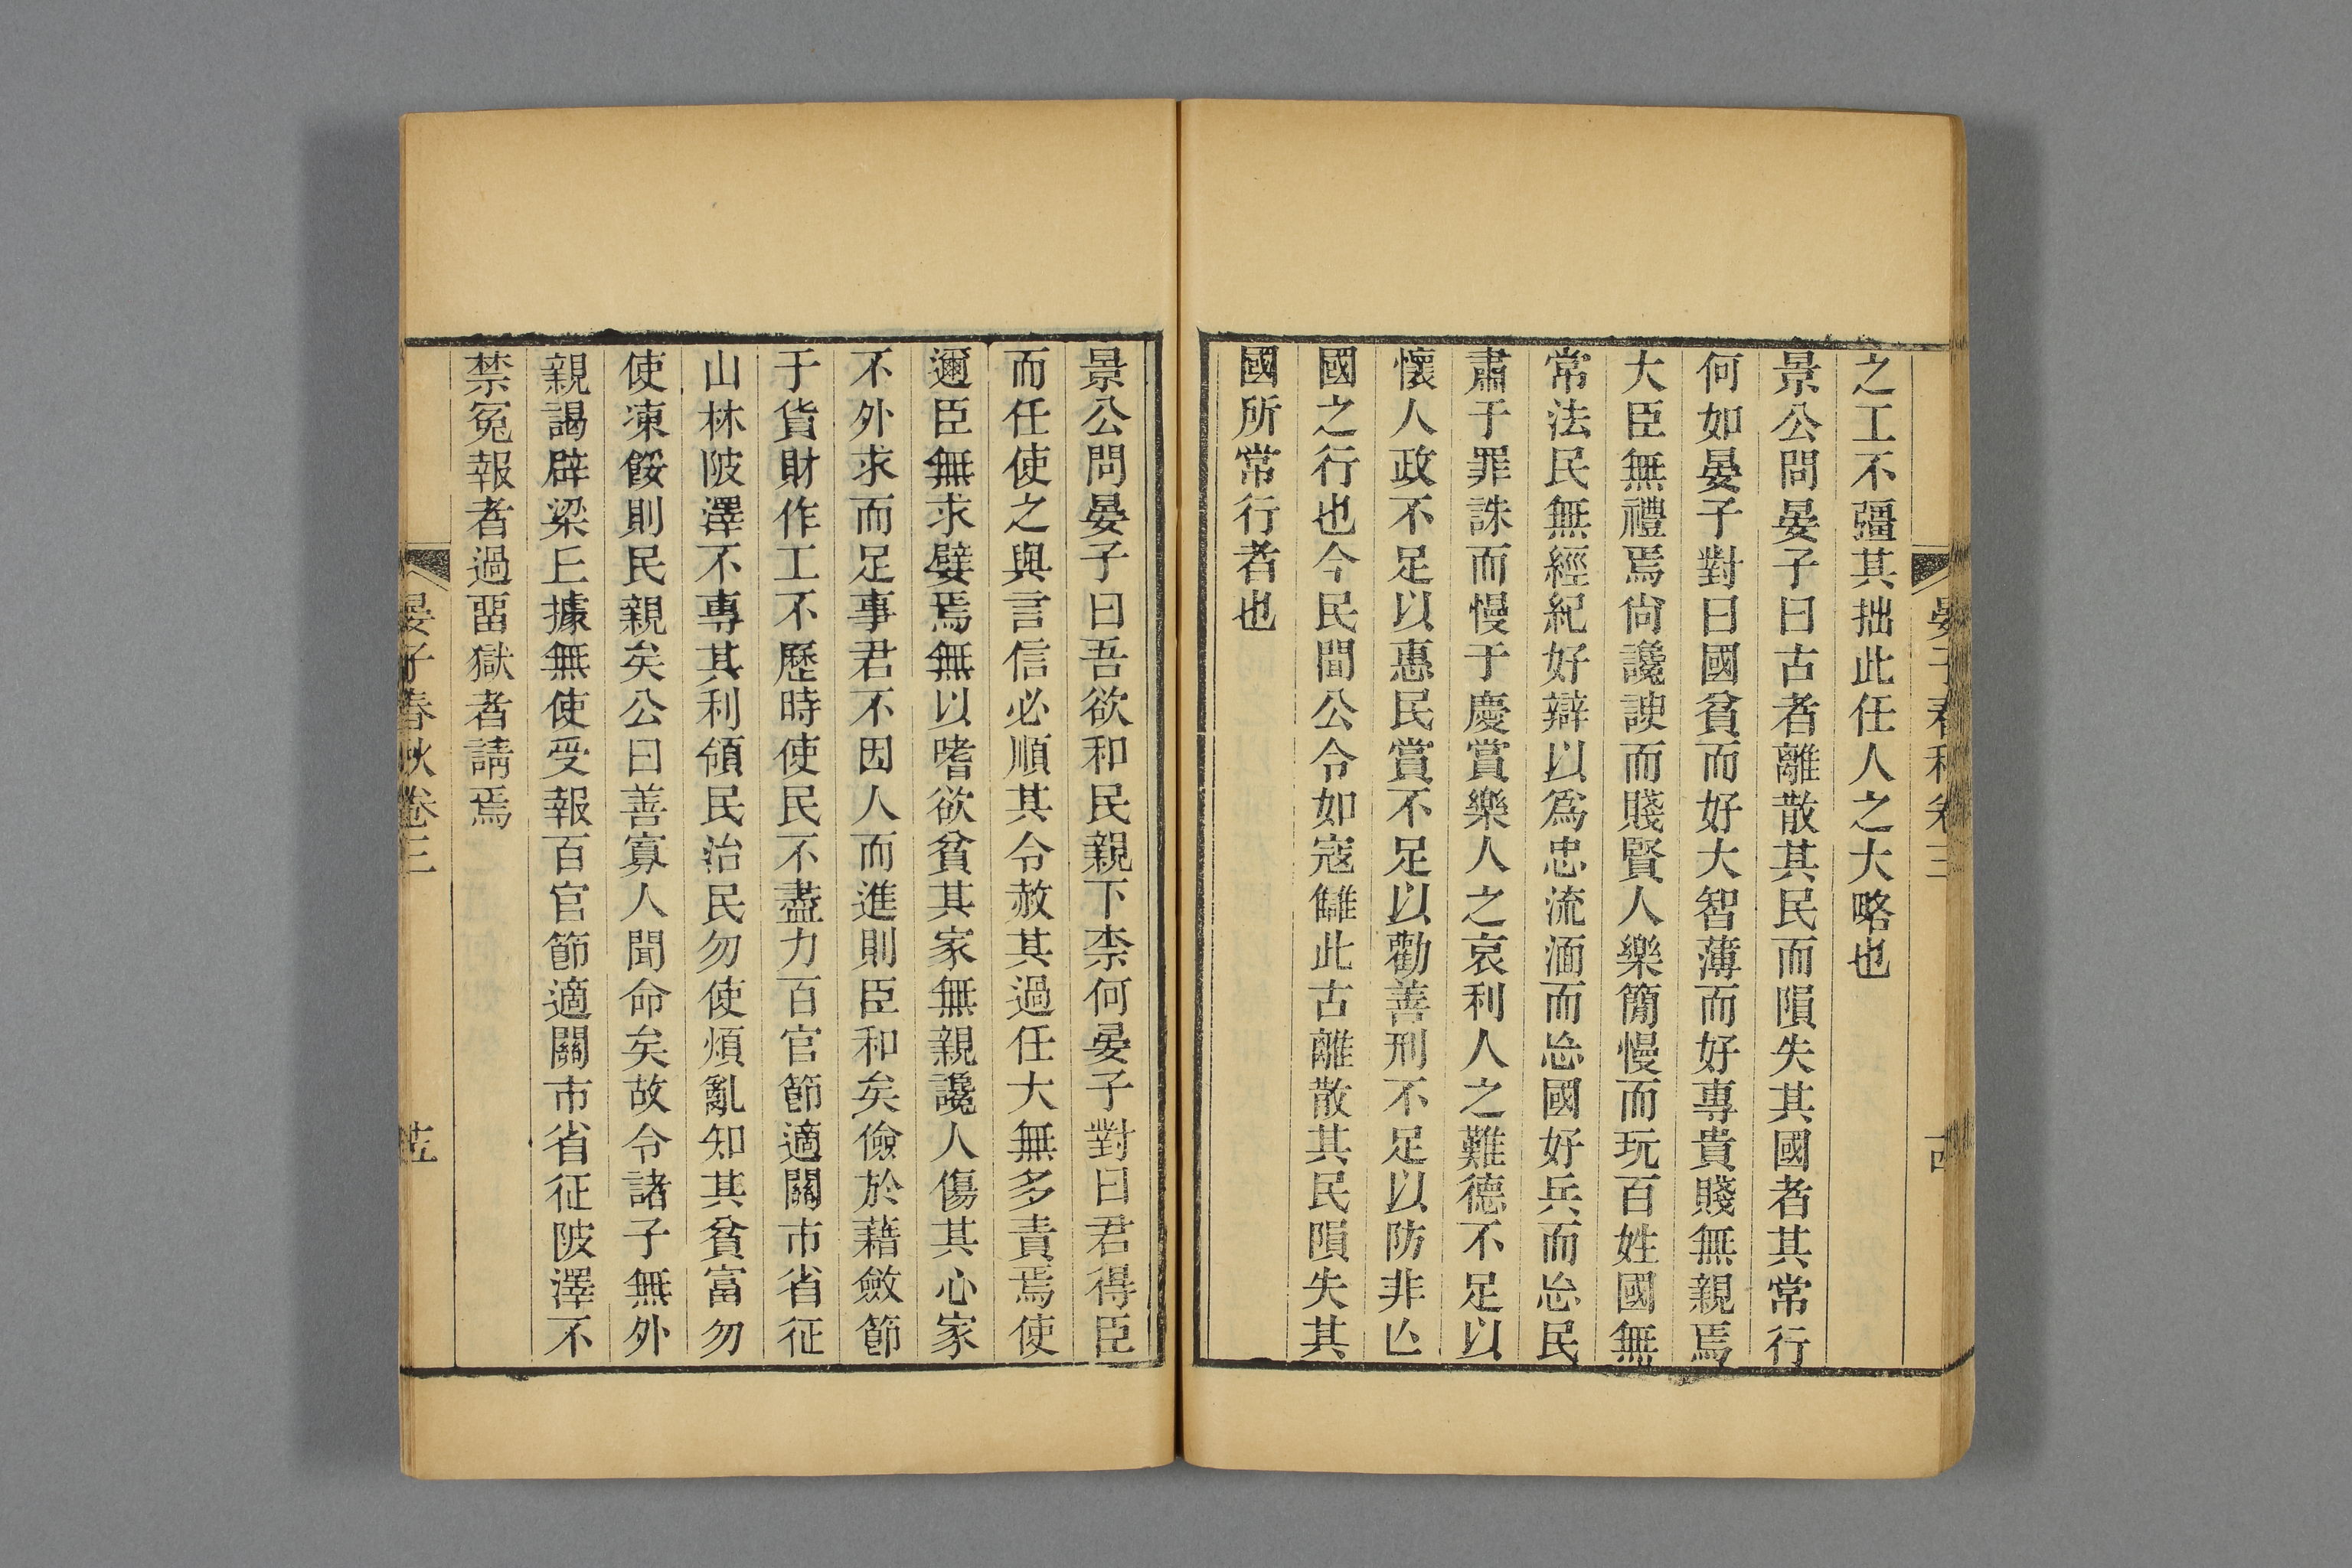 之工不彊其拙此任人之大略也
景公問晏子曰古者離散其民而隕失其國者其常行
何如晏子對曰國貧而好大智薄而好專貴賤無親焉
大臣無禮焉尚讒諛而賤賢人樂簡慢而玩百姓國無
常法民無經紀好辯以爲忠流湎而忘國好兵而忘民
肅于罪誅而慢于慶賞樂人之哀利人之難德不足以
懷人政不足以惠民賞不足以勸善刑不足以防非亾
國之行也今民聞公令如寇讎此古離散其民隕失其
國所常行者也
景公問晏子曰吾欲和民親下柰何晏子對曰君得臣
而任使之與言信必順其令赦其過任大無多責焉使
邇臣無求嬖焉無以嗜欲貧其家無親讒人傷其心家
不外求而足事君不因人而進則臣和矣儉於藉斂節
于貨財作工不歷時使民不盡力百官節適關市省征
山林陂澤不專其利領民治民勿使煩亂知其貧富勿
使凍餒則民親矣公曰善寡人聞命矣故令諸子無外
親謁辟梁丘據無使受報百官節適關市省征陂澤不
禁冤報者過畱獄者請焉
晏子春秋卷三